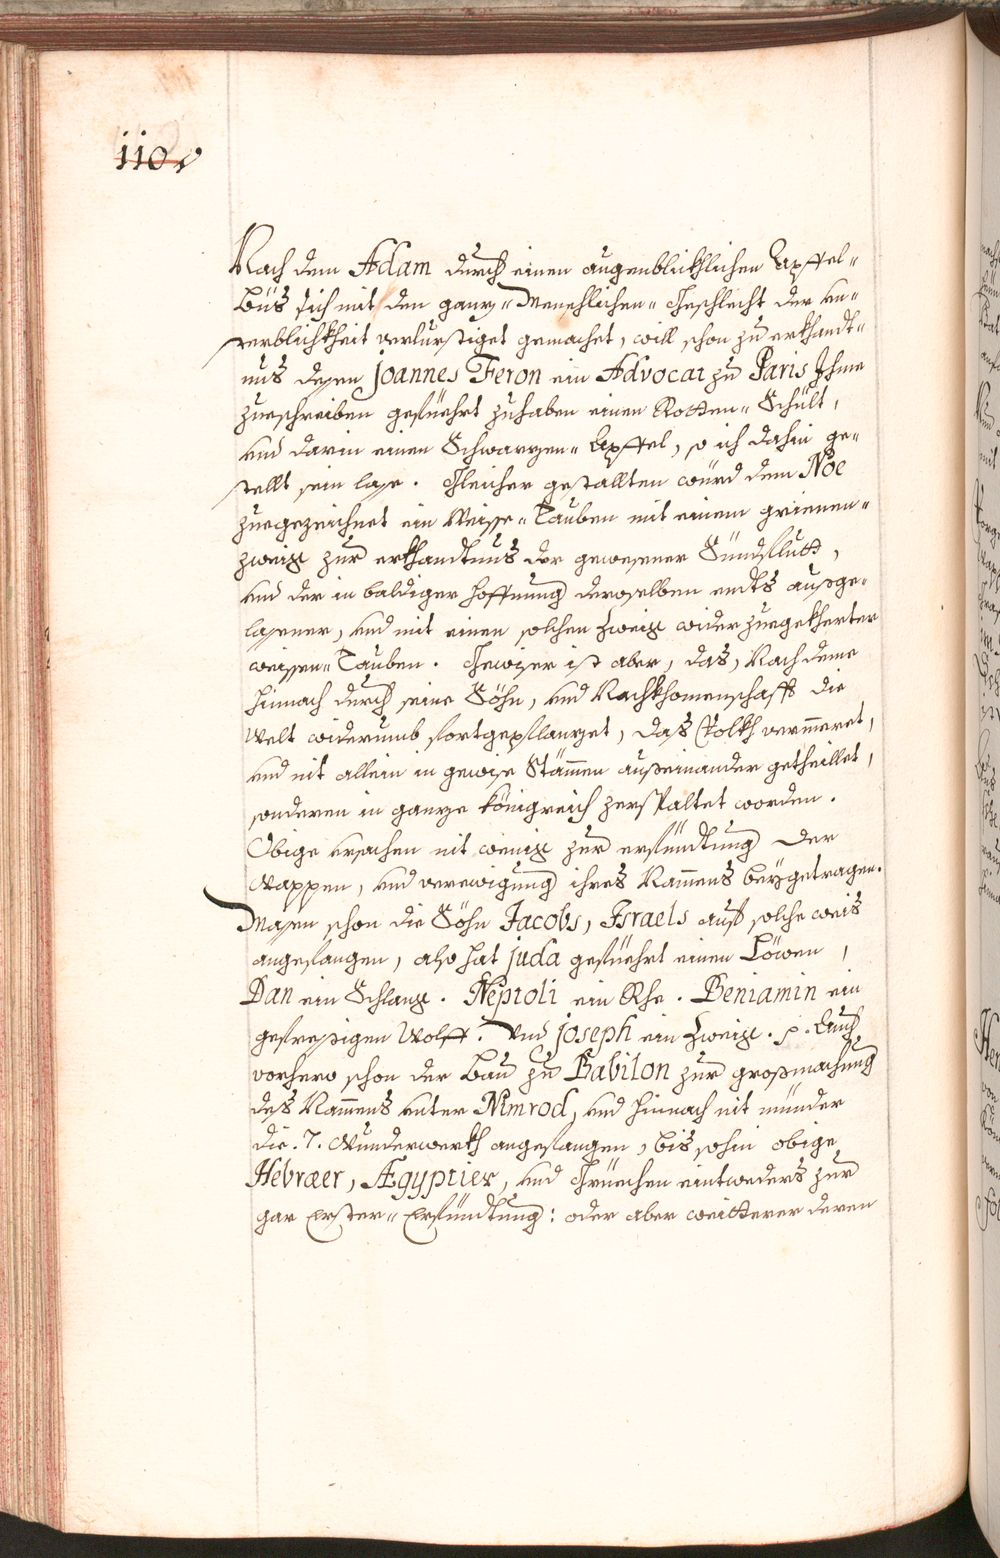 110v
Nach dem Adam durch einen augenblickhlichen Apffel-
Büs sich mit den ganz- Menschlichen- Geschlecht der un-
sterblichkheit verlurstiget gemachet, will schon zu erkhandt-
nus dessen Joannes Feron ein Advocat zu Paris Ihme
zueschreiben gefüehrt zuhaben einen Rotten- Schült,
und darin einen Schwarzen- Apffel, so ich dahin ge-
stellt sein lase. Gleicher gestallten würd dem Noe
zuegezeichnet ein Weisse- Tauben mit einem grienen-
zweig zur erkhandtnus der gewesener Sündflutt,
und der in baldiger hoffnung deroselben endts außge-
lassener, und mit einen solchen zweig wider zuegekherter
weissen- Tauben. Gewiser ist aber, das, Nach deme
hinnach durch seine Söhn, und Nachkhomenschafft die
Welt widerumb fortgepflanzet, das Volkh vermeret,
und nit allein in gewise Stämen außeinander getheillet,
sonderen in ganze königreich zerspaltet worden.
Obige ursachen nit wenig zur erfündtung der
Wappen, und verewigung ihres Namens beygetragen.
Massen schon die Söhn Jacobs, Israels auf solche weis
angefangen, also hat Juda gefüehrt einen Löwen,
Dan ein Schlang. Neptoli ein Rhe. Beniamin ein
gefressigen Wolff. Und Joseph ein zweig. p. Auch
vorhero schon der Bau zu Babilon zur großmachung
des Namens unter Nimrod, und hinnach nit münder
die .7. Wunderwerkh angefangen, bis sohin obige
Hebræer, Ægyptier, und Grüechen eintweders zur
gar Erster- Erfündtung: oder aber weitterer deren